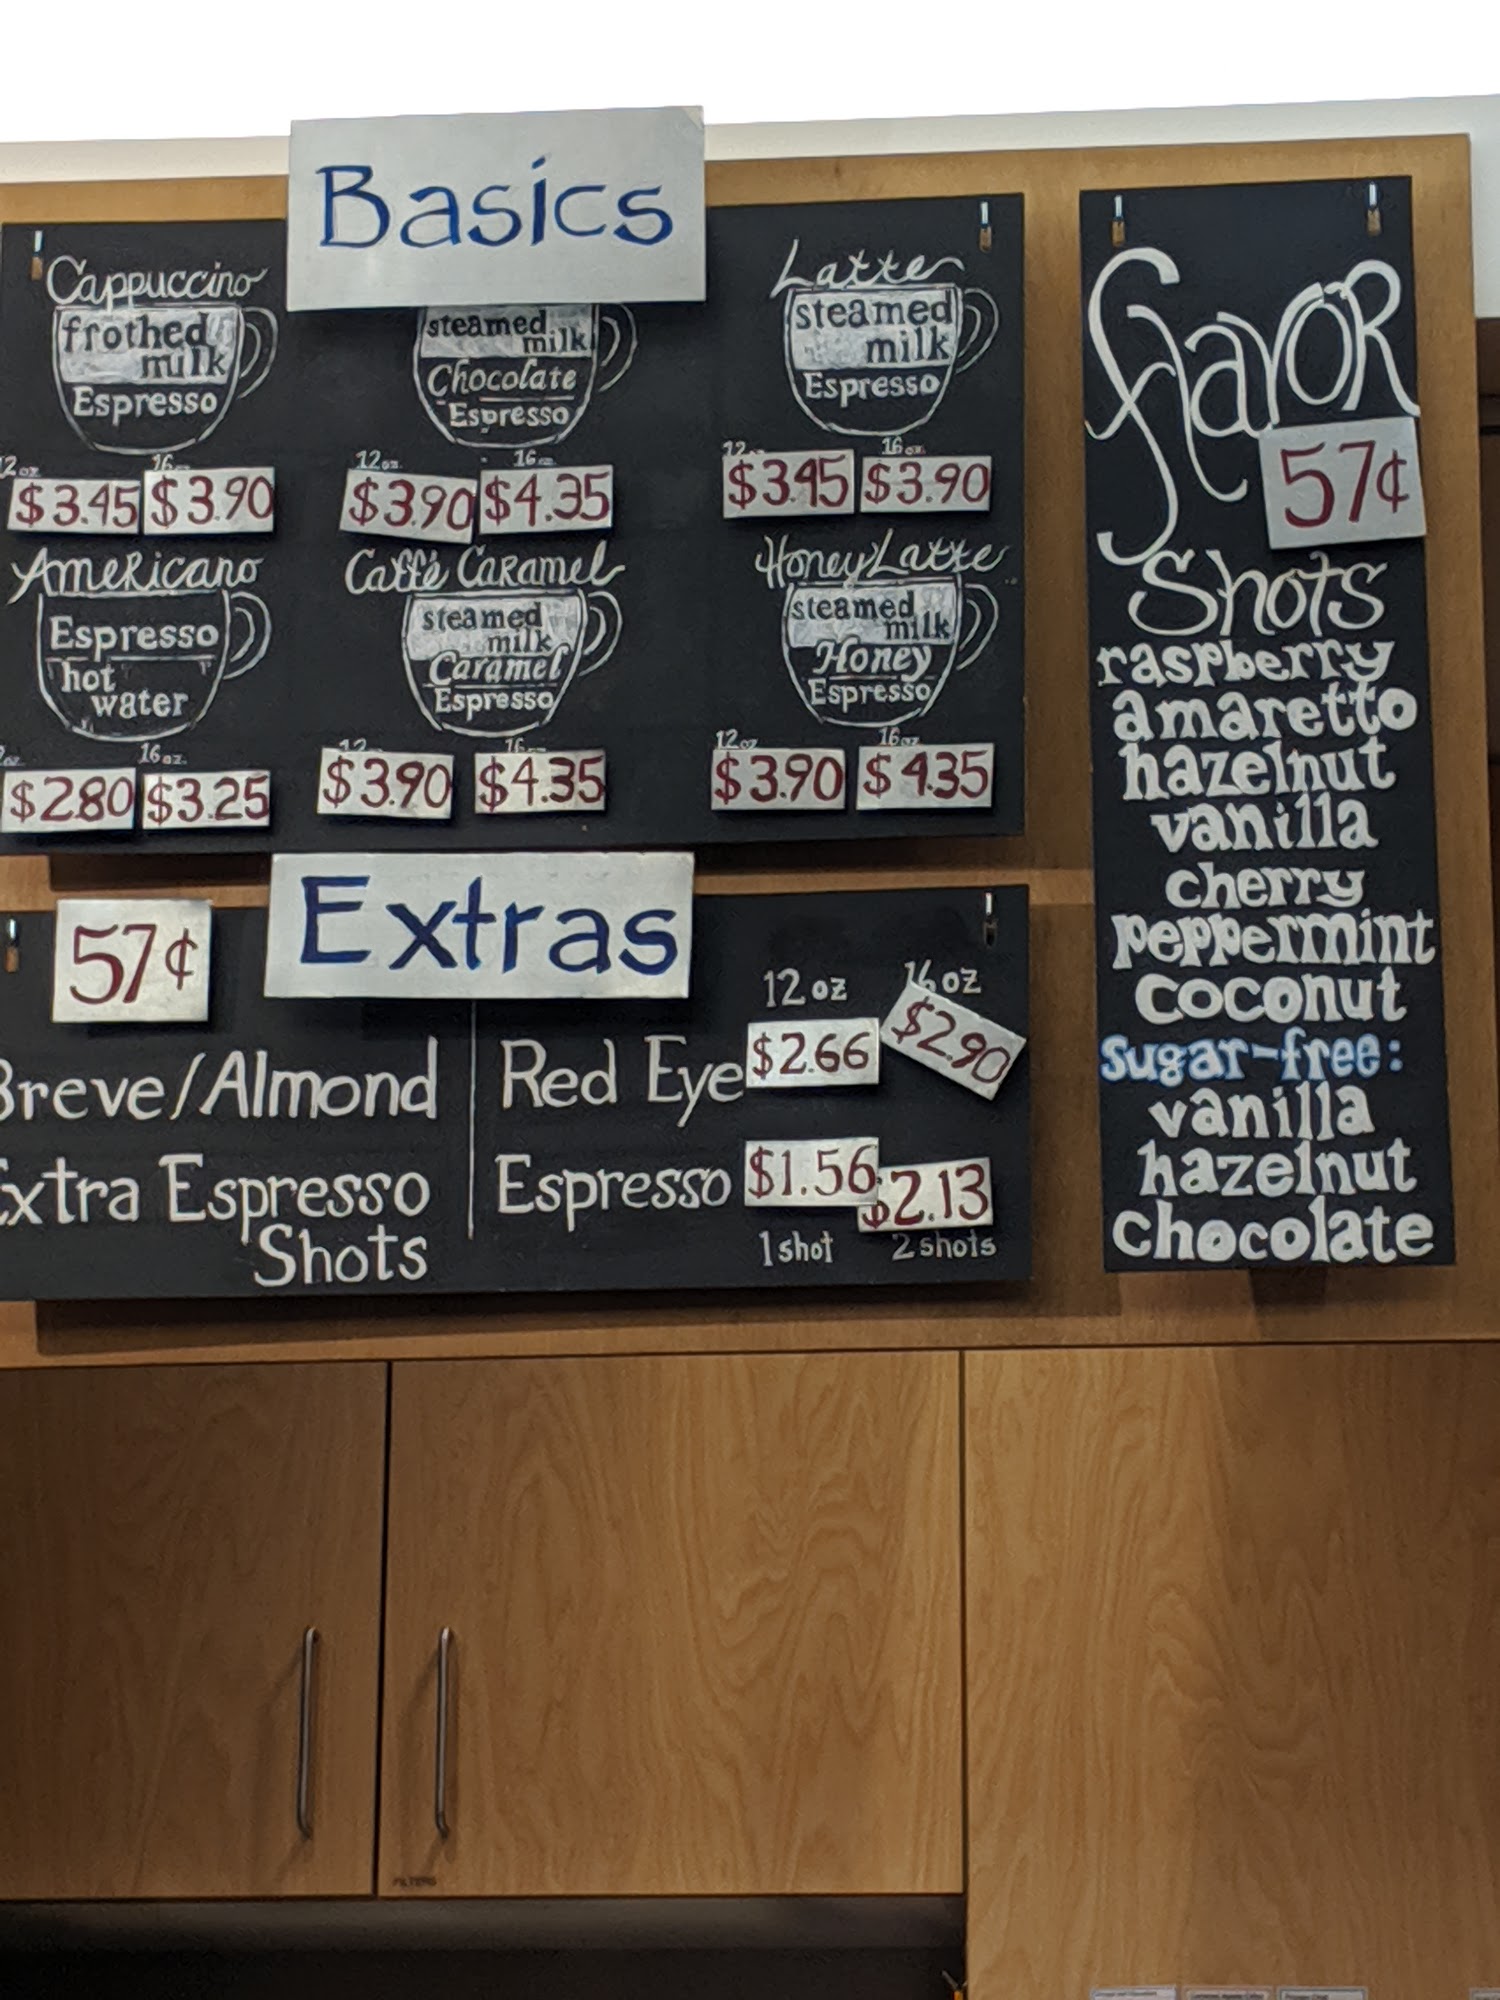 Basics
Cappuccino
frothed
milk
Espresso
12 oz
16
$3.45
$3.90
steamed
milk
Chocolate
Espresso
12oz.
16
$3.90
$4.35
Latte
steamed
milk
Espresso
12
16oz.
$3.45
$3.90
Americano
Espresso
hot
water
oz.
16oz.
$2.80
$3.25
Caffé Caramel
steamed
milk
Caramel
Espresso
12
16
$3.90
$4.35
Honey Latte
steamed
milk
Honey
Espresso
12oz
16oz
$3.90
$4.35
Extras
57¢
Breve/Almond
Extra Espresso
Shots
12 oz
16 oz
Red Eye
$2.66
$2.90
Espresso
$1.56
$2.13
1 shot
2 shots
flavoR
57¢
Shots
raspberry
amaretto
hazelnut
vanilla
cherry
peppermint
coconut
sugar-free:
vanilla
hazelnut
chocolate
FILTERS